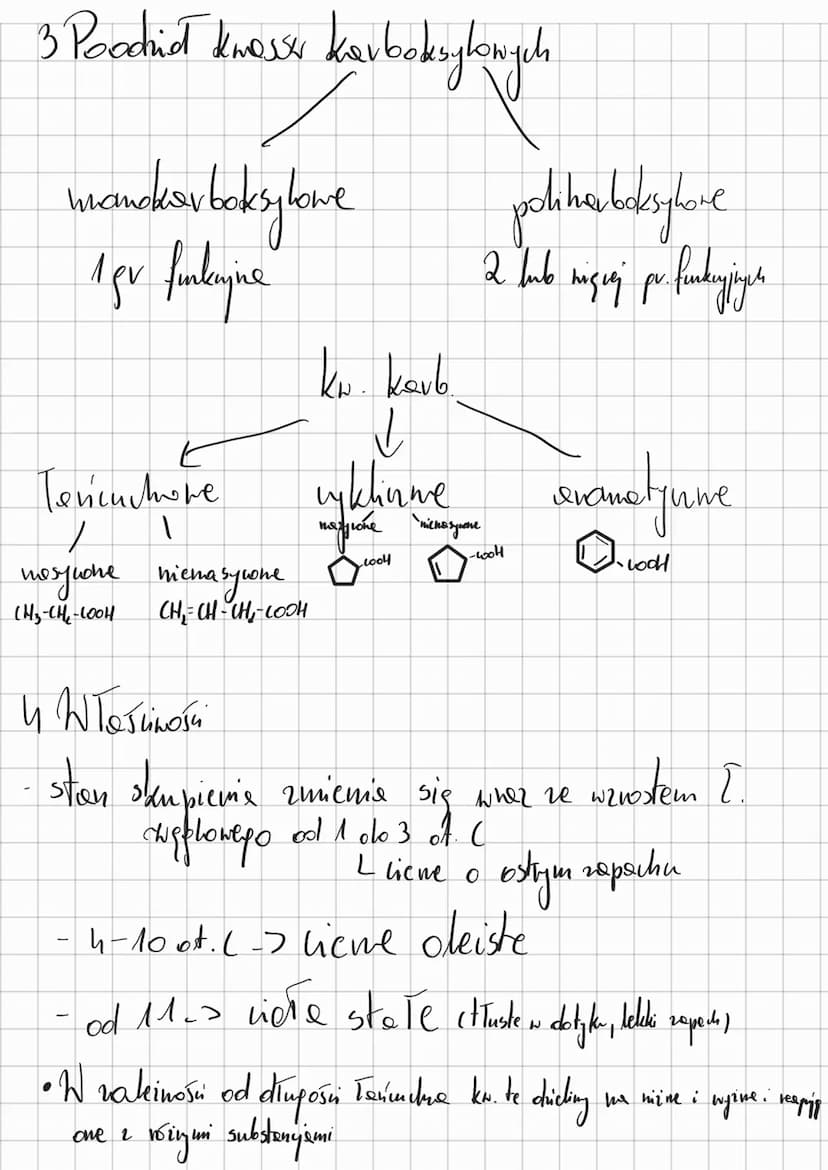 3 Podział kwasów karboksylowych
monokarboksylowe
polikarboksylowe
1 gr funkcyjna
2 lub więcej gr. funkcyjnych
kw. karb.
Łańcuchowe
cykliczne
aromatyczne
nasycone
nienasycone
nasycone
nienasycone
CH3-CH2-COOH
CH2=CH-CH2-COOH
COOH
-COOH
COOH
4 Właściwości
- stan skupienia zmienia się wraz ze wzrostem ł.
węglowego od 1 do 3 at. C
L ciecze o ostrym zapachu
- 4-10 at. C -> ciecze oleiste
- od 11 -> ciała stałe (tłuste w dotyku, lekki zapach)
• W zależności od długości łańcucha kw. te dzielimy na niższe i wyższe i reagują
one z różnymi substancjami